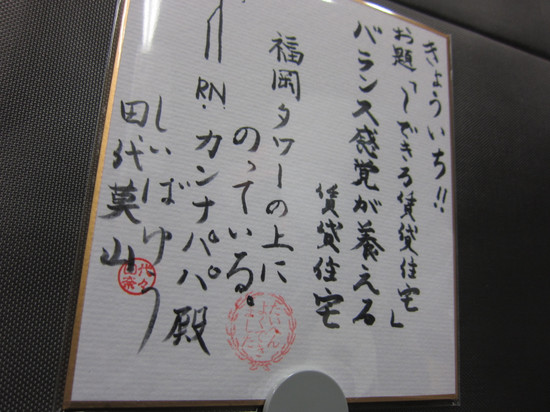 きょういち!!
お題「〜できる賃貸住宅」
バランス感覚が養える
賃貸住宅
福岡タワーの上に
のっている。
RN.カンナパパ殿
しいばゆう
田代莫山